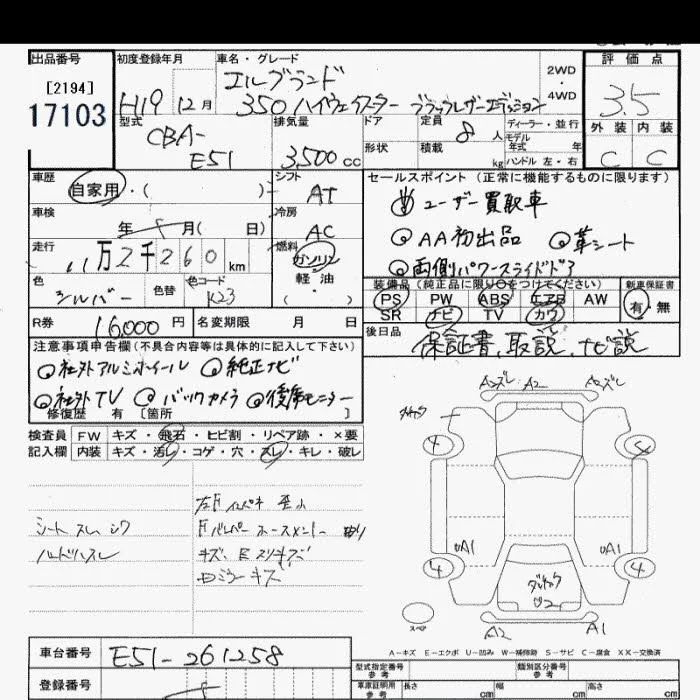 出品番号
[2194]
17103
初度登録年月
H19 12月
車名・グレード
エルグランド
350 ハイウェイスター ブラックレザーエディション
2WD
・
4WD
評価点
3.5
外装 内装
C C
型式
CBA-
E51
排気量
3,500 cc
ドア
形状
定員
8 人
積載
kg
ディーラー・並行
モデル
年式 年
ハンドル 左・右
車歴
自家用・( )
シフト
AT
車検
年 月( 日)
冷房
AC
走行
11万2千260 km
燃料
ガソリン
軽油
( )
色
シルバー
色替
色コード
K23
R券
16,000円
名変期限 月 日
セールスポイント(正常に機能するものに限ります)
ユーザー買取車
AA初出品 革シート
両側パワースライドドア
装備品(純正品に限り○をつけてください)
PS PW ABS エアB AW
SR ナビ TV カワ
新車保証書
有・無
後日品
保証書、取説、ナビ説
注意事項申告欄(不具合内容等は具体的に記入して下さい)
社外アルミホイール 純正ナビ
社外TV バックカメラ 後席モニター
修復歴 有 [箇所 ]
検査員
記入欄
FW キズ・飛石・ヒビ割・リペア跡・×要
内装 キズ・汚レ・コゲ・穴・スレ・キレ・破レ
シート スレ シワ
ハンドルスレ
A2 A2
4
4 4
A1 A1
スペア
A2 A1
A-キズ E-エクボ U-凹み W-補修跡 S-サビ C-腐食 XX-交換済
車台番号
E51-261258
登録番号
型式指定番号
参考
類別区分番号
参考
車庫証明用
参考
長さ cm 幅 cm 高さ cm